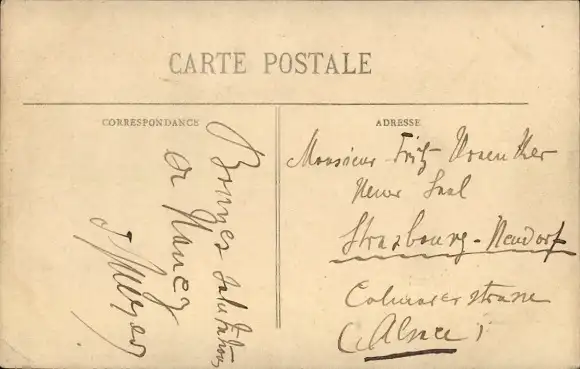 CARTE POSTALE
CORRESPONDANCE
Bonnes Salutations
de Nancy
ADRESSE
Monsieur Fritz
Neue
Strasbourg-Neudorf
Colmarerstrasse
(Alsace)